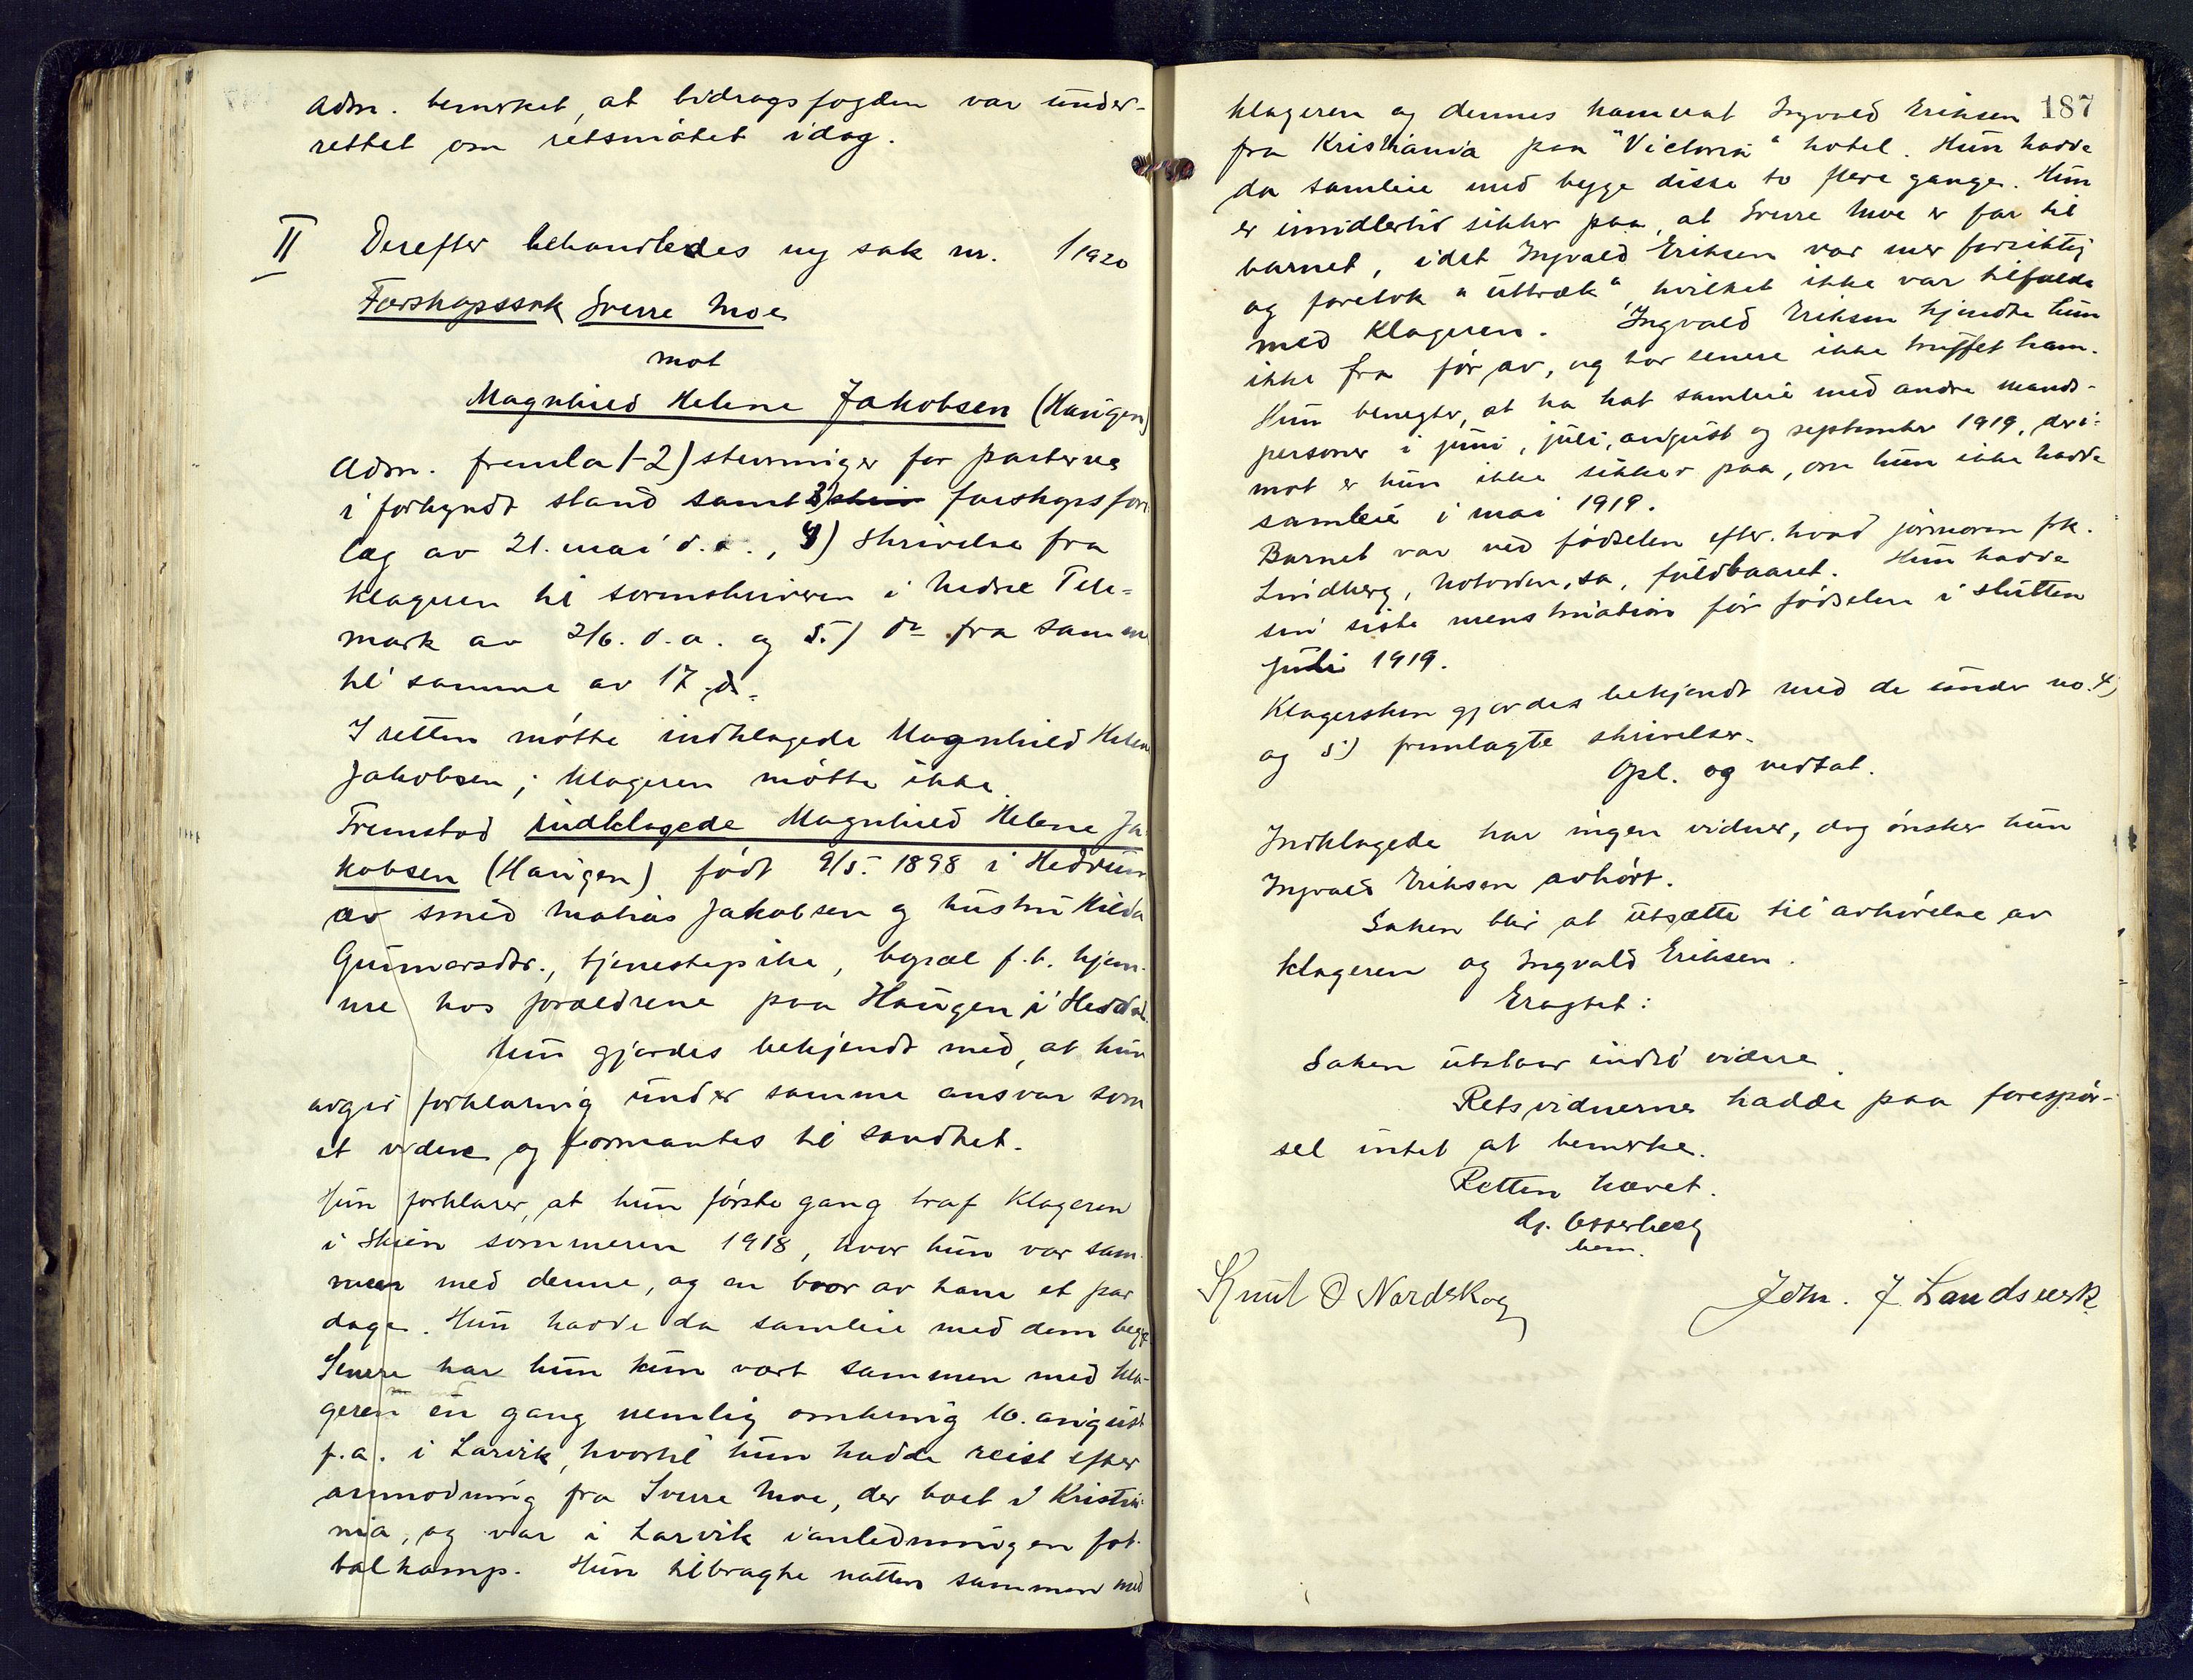 Adm. bemerket, at bidragsfogden var under-
rettet om retsmøtet idag.
II Derefter behandledes ny sak nr. 1/1920
Farskapssak Sverre Moe
mot
Magnhild Helene Jakobsen (Haugen)
Adm. fremla 1-2) stevninger for parterne
i forkyndt stand samt 3) farskapsfore-
læg av 21. mai d.a., 4) skrivelse fra
klageren til sorenskriveren i Nedre Tele-
mark av 2/6. d.a. og 5.) do fra samme
til samme av 17 ds.
I retten møtte indklagede Magnhild Helene
Jakobsen; klageren møtte ikke.
Fremstod indklagede Magnhild Helene Ja-
kobsen (Haugen) født 9/5. 1898 i Hedrum
av smed Mathias Jakobsen og hustru Hilda
Gunnarsdtr., tjenestepike, bopæl f.t. hjem-
me hos forældrene paa Haugen i Heddal.
Hun gjordes bekjendt med, at hun
avgir forklaring under samme ansvar som
et vidne og formantes til sandhet.
Hun forklarer, at hun første gang traf klageren
i Skien sommeren 1918, hvor hun var sam-
men med denne, og en bror av ham et par
dage. Hun havde da samleie med dem begge
Senere har hun kun vært sammen med kla-
geren én gang nemlig omkring 10. august
f.a. i Larvik, hvortil hun hadde reist efter
anmodning fra Sverre Moe, der boet i Kristia-
nia, og var i Larvik i anledning en fot-
balkamp. Hun tilbragte natten sammen med
187
klageren og dennes kamerat Ingvald Eriksen
fra Kristiania paa "Victoria" hotel. Hun havde
da samleie med begge disse to flere gange. Hun
er imidlertid sikker paa, at Sverre Moe er far til
barnet, idet Ingvald Eriksen var mer forsiktig
og foretok "uttræk", hvilket ikke var tilfælde
med klageren. Ingvald Eriksen kjendte hun
ikke fra før av, og har senere ikke truffet ham.
Hun benegter, at ha hat samleie med andre mands-
personer i juni, juli, august og september 1919, deri-
mot er hun ikke sikker paa, om hun ikke hadde
samleie i mai 1919.
Barnet var ved fødselen efter hvad jormoren frk.
Lindberg, Notodden, sa, fuldbaaret. Hun havde
sin siste menstruation før fødselen i slutten
juli 1919.
Klagersken gjordes bekjendt med de under no. 4)
og 5) fremlagte skrivelser.
Opl. og vedtat.
Indklagede har ingen vidner, dog ønsker hun
Ingvald Eriksen avhørt.
Saken blir at utsætte til avhørelse av
klageren og Ingvald Eriksen.
Eragtet:
Saken utstaar indtil videre.
Retsvidnerne hadde paa forespør-
sel intet at bemerke.
Retten hævet.
Knut O Nordskog
Joh. J. Landsverk